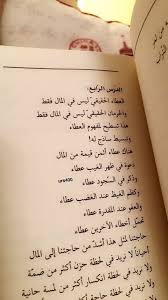 الدرس الرابع:
العطاء الحقيقي ليس في المال فقط
والحرمان الحقيقي ليس في المال فقط
هذا تسطيح لمفهوم العطاء
وتبسيط ساذج له!
هناك عطاء أثمن قيمة من المال
دعوة في ظهر الغيب عطاء
وذكر في السجود عطاء
وكظم الغيظ عند الغضب عطاء
والعفو عند المقدرة عطاء
تحمّل أخطاء الآخرين عطاء
حاجتنا لمثل هذا أشدّ من حاجتنا إلى المال
ولا نريد في لحظة حزن أكثر من ضمّة
ولا نريد في لحظة انكسار أكثر من لمسة حانية